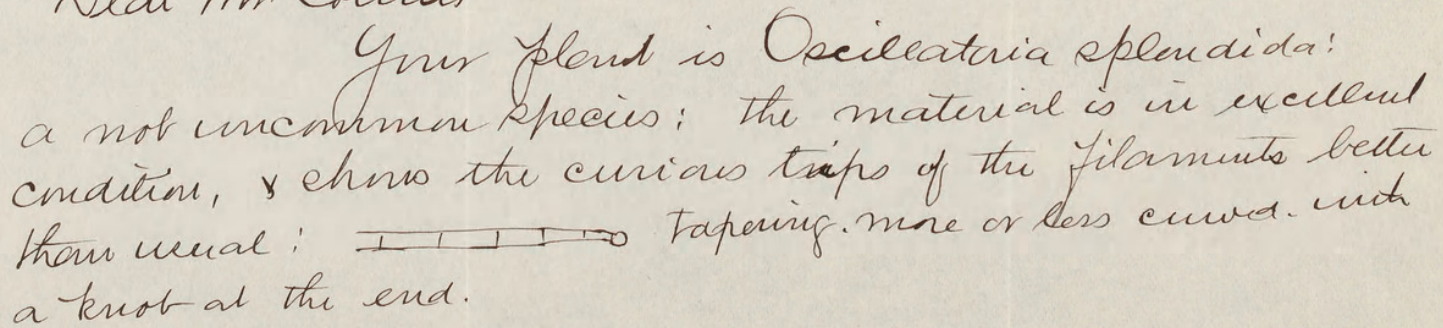 Dear Mr Collins
Your plant is Oscillatoria splendida:
a not uncommon species: the material is in excellent
condition, & shows the curious tips of the filaments better
than usual: tapering. more or less curved. with
a knob at the end.